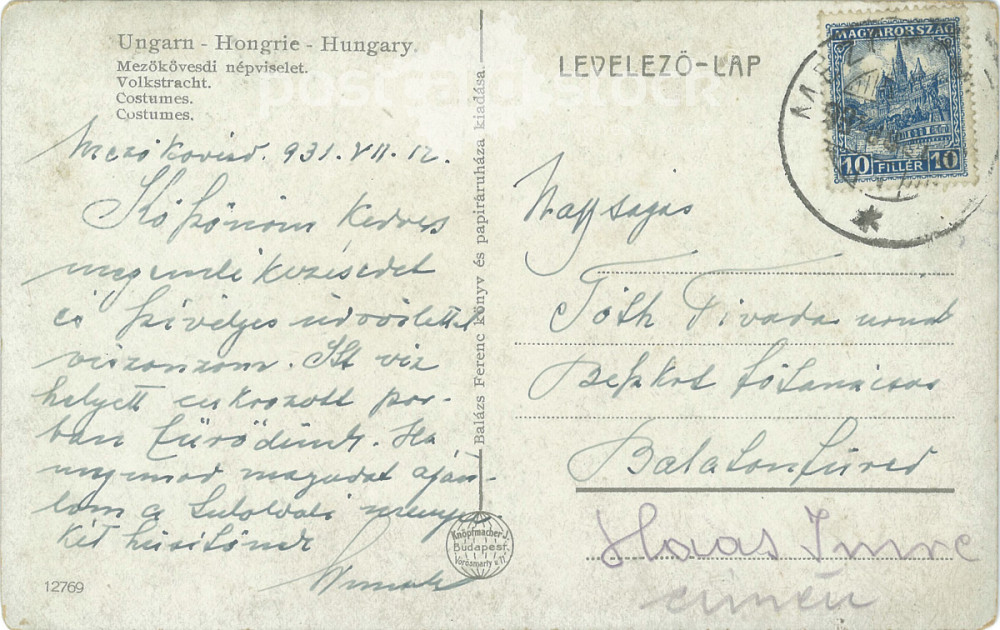 Ungarn - Hongrie - Hungary.
Mezőkövesdi népviselet.
Volkstracht.
Costumes.
Costumes.
Mezőkövesd. 931. VII. 12.
Köszönöm kedves
megemlékezésedet
és szívélyes üdvözletted
viszonzom. Itt víz
helyett cukrozott por-
ban fürödünk. Ha
meguntad magadat aján-
lom a túloldali
két hűsítőnek
12769
Balázs Ferenc könyv és papíráruháza kiadása.
Knopfmacher J.
Budapest.
Vörösmarty u. 11
LEVELEZŐ-LAP
MAGYARORSZÁG
10 FILLÉR 10
Nagyságos
Tóth Tivadar urnak
főtanácsos
Balatonfüred
Haas Imre
címén
postcardstock